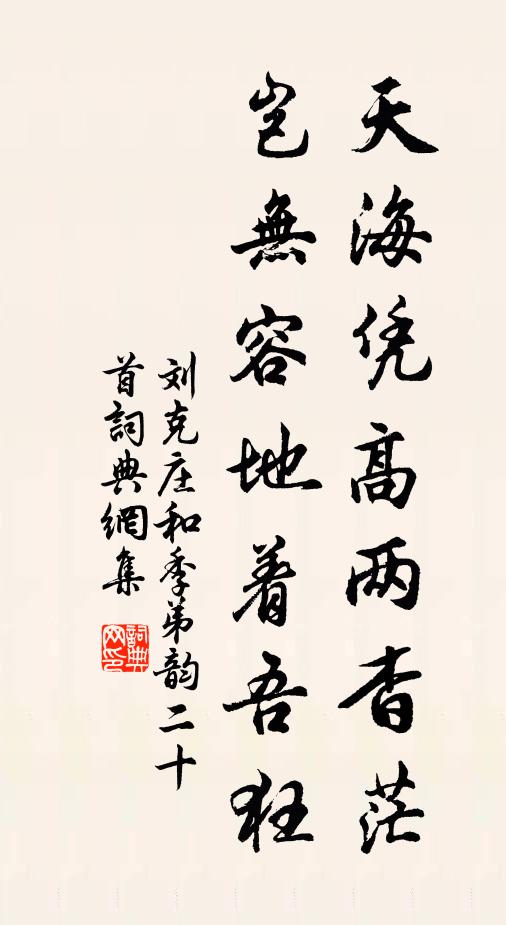 天海凭高两杳茫
岂無容地着吾狂
刘克庄和季弟韵二十
首詞典網集
詞典網印